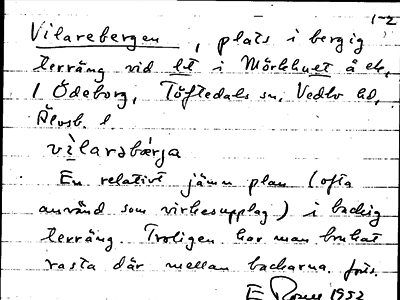 1-2
Vilarebergen, plats i bergig
terräng vid lt i Mörkhult å ek.
1 Ödeborg, Töftedals sn, Vedbo hd,
Älvsb. l.
vìlarəbærja
En relativt jämn plan (ofta
använd som virkesupplag) i backig
terräng. Troligen har man brukat
rasta där mellan backarna. förr.
E 1952